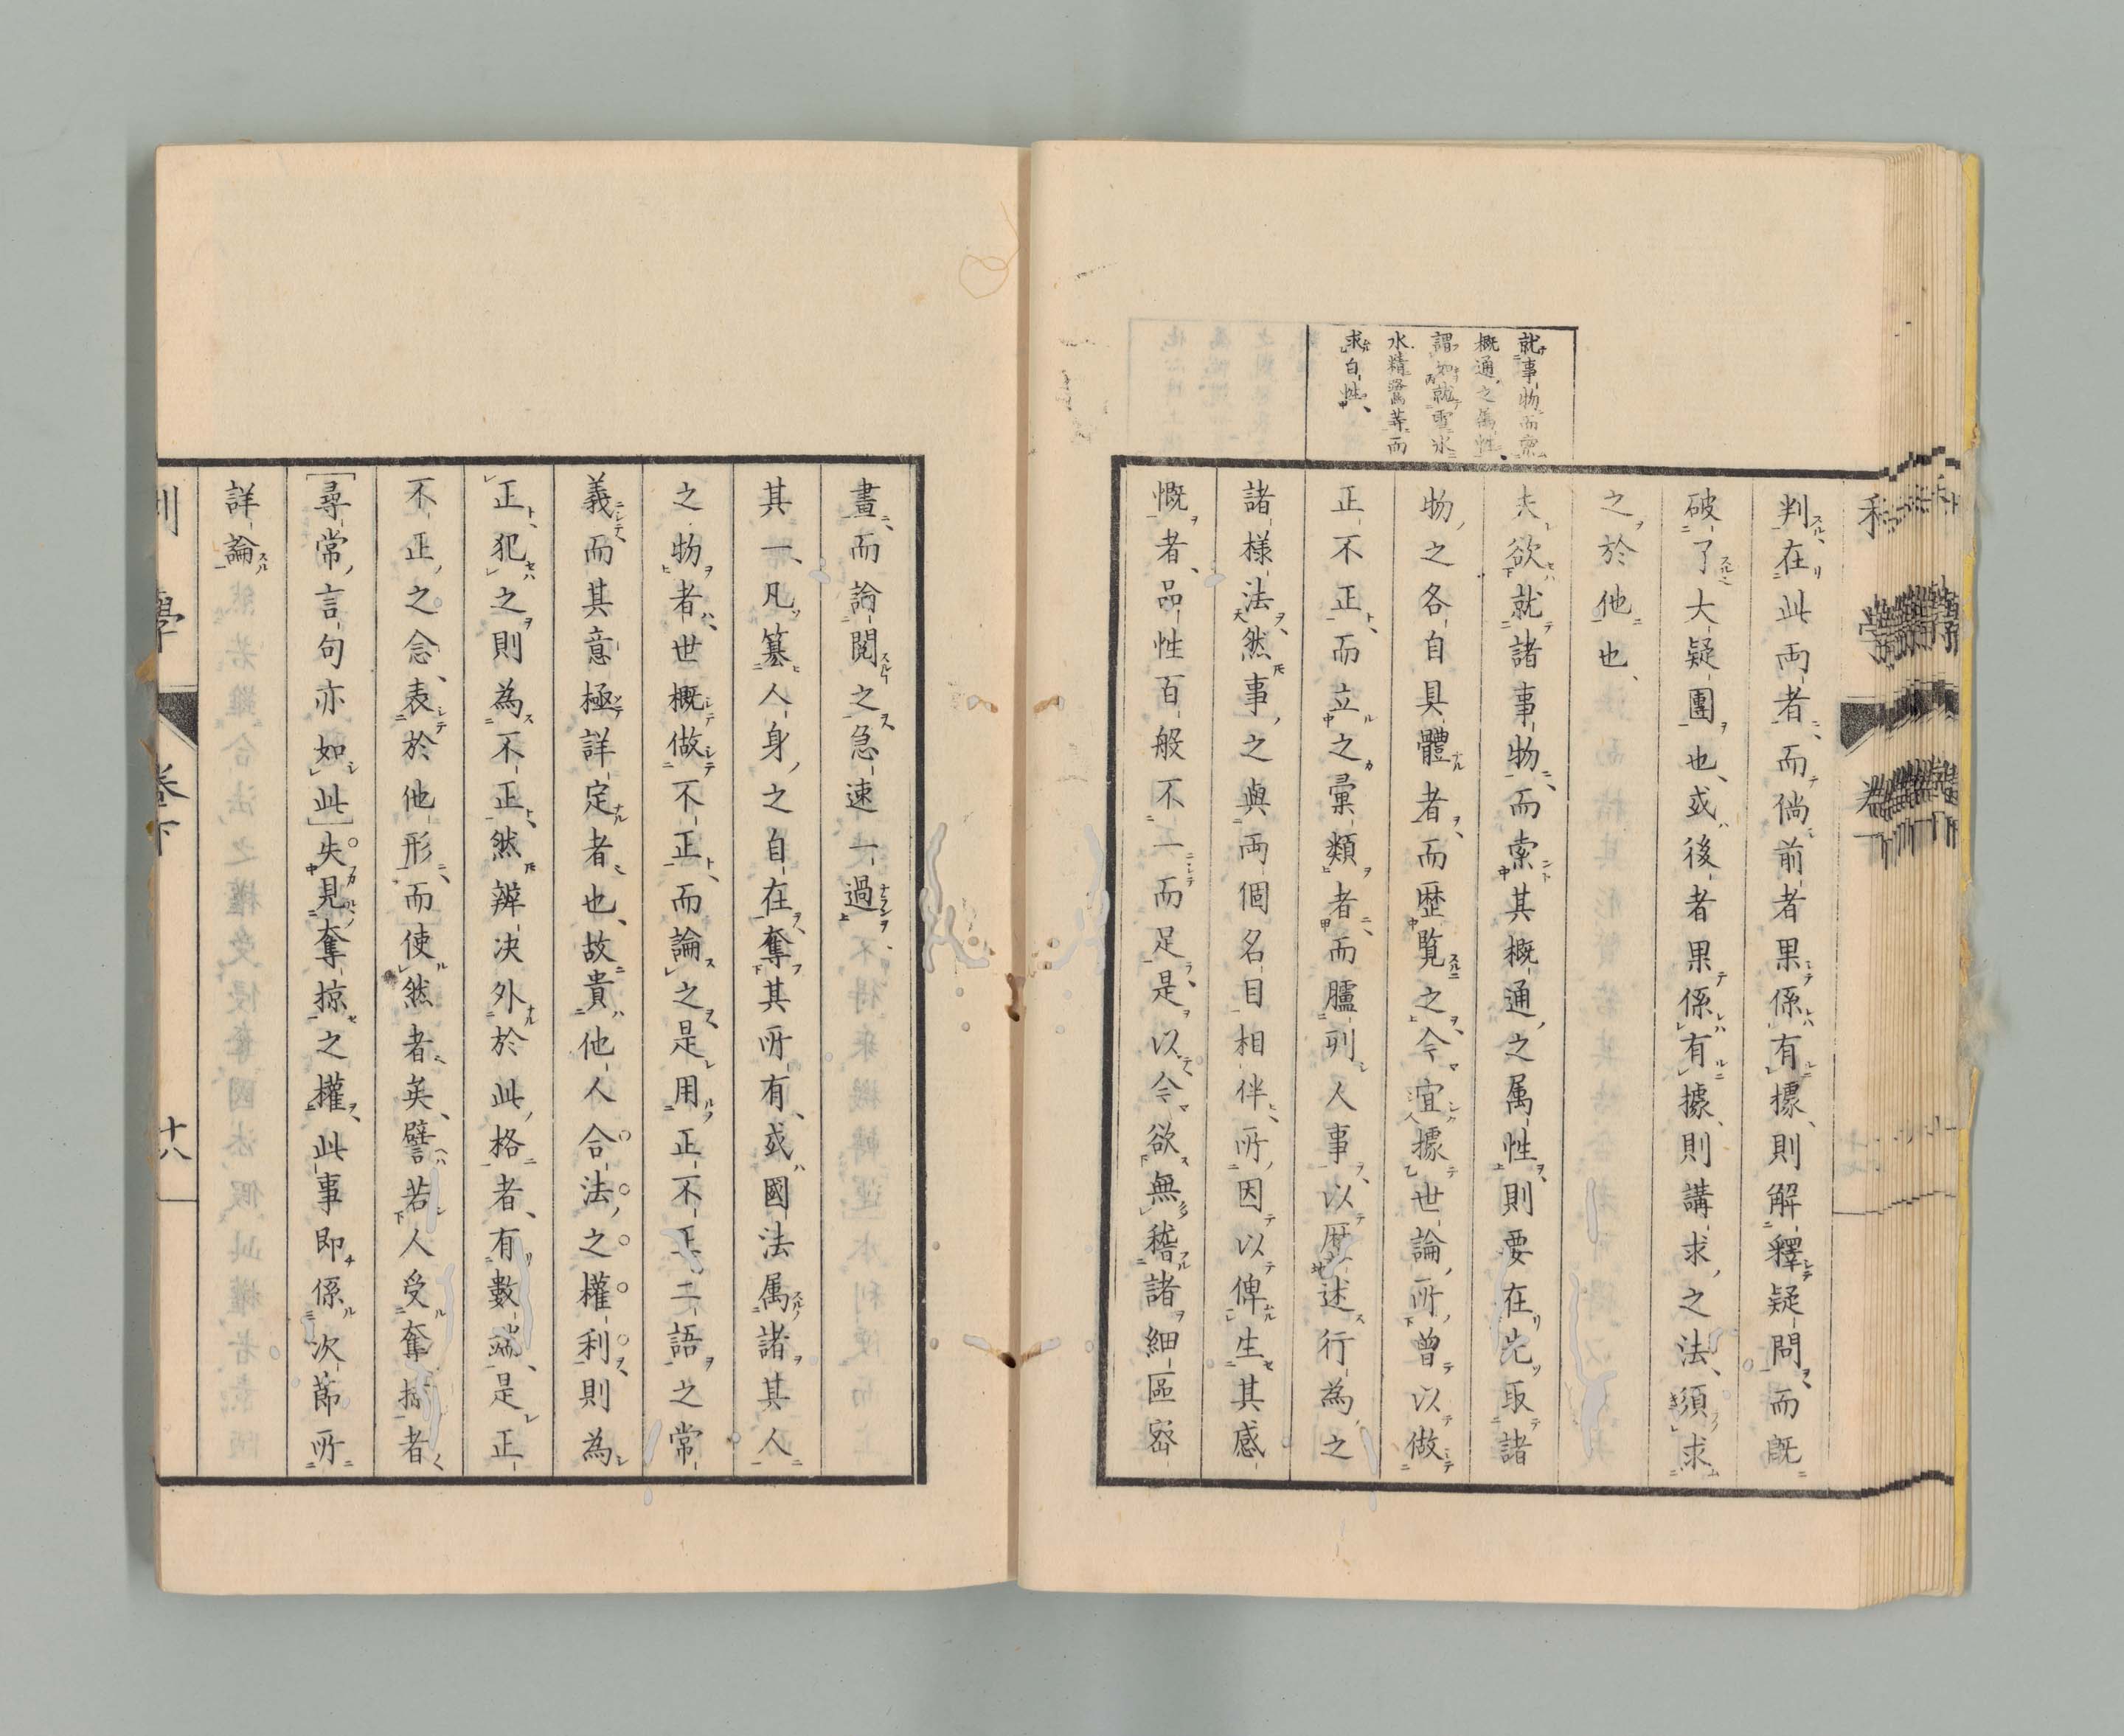 就事物而索
概通之属性
謂如就雪氷
水精鷺等而
求白性
判在此両者而倘前者果係有據則解釋疑問而既
破了大疑團也或後者果係有據則講求之法須求
之於他也
夫欲就諸事物而索其概通之属性則要在先取諸
物之各自具體者而歴覧之今宜據世論所曾以做
正不正而立之彙類者而臚列人事以歴述行為之
諸樣法然事之與両個名目相伴所因以俾生其感
慨者品性百般不一而足是以今欲無稽諸細區密
畫而論閲之急速一過
其一凡簒人身之自在奪其所有或國法属諸其人
之物者世概做不正而論之是用正不正二語之常
義而其意極詳定者也故貴他人合法之權利則為
正犯之則為不正然辨决外於此格者有數端是正
不正之念表於他形而使然者矣譬若人受奪掠者
尋常言句亦如此失見奪掠之權此事即係次節所
詳論
卷下
十八